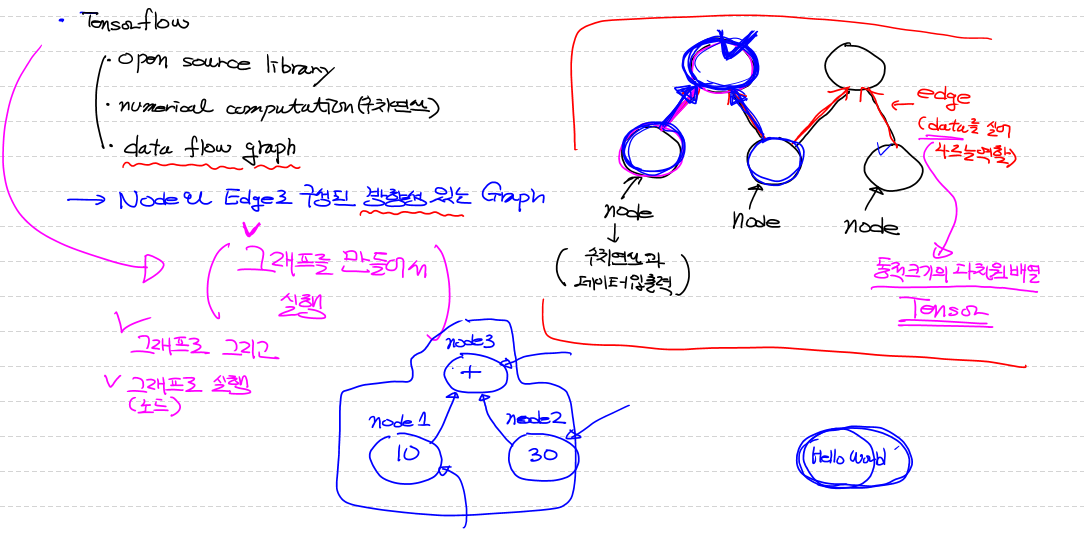 · Tensorflow
· open source library
· numerical computation(수치연산)
· data flow graph
→ Node와 Edge로 구성된 방향성 있는 Graph
(그래프를 만들어서
실행)
그래프로 그리고
그래프로 실행
(노드)
edge
(data를 실어
나르는역할)
node
node
node
(수치연산과
데이터입출력)
동적크기의 다차원배열
Tensor
node3
+
node1
node2
10
30
Hello World